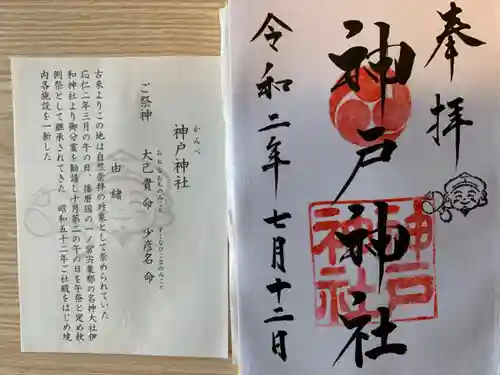 奉拝
神戸神社
令和二年七月十二日
神戸神社
かんべ
神戸神社
ご祭神
おおなむちのみこと
大己貴命
すくなひこなのみこと
少彦名命
由緒
古来よりこの地は自然崇拝の対象として崇められていた
応仁二年三月の午の日、播磨国の一ノ宮宍粟郡の名神大社伊
和神社より御分霊を勧請し十月第二の午の日を午祭と定め秋
例祭として継承されてきた 昭和五十二年ご社殿をはじめ境
内各施設を一新した